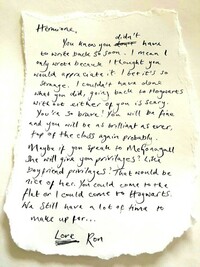 Hermione,
You know you didn't have
to write back so soon. I mean I
only wrote because I thought you
would appreciate it. I bet it's so
strange. I couldn't have done
what you did, going back to Hogwarts
without either of you is scary.
You're so brave! You will be fine
and you will be as brilliant as ever,
top of the class again probably.
Maybe if you speak to McGonagall
she will give you privileges! Like
boyfriend privileges! That would be
nice of her. You could come to the
flat or I could come to Hogwarts.
We still have a lot of time to
make up for...
Love Ron